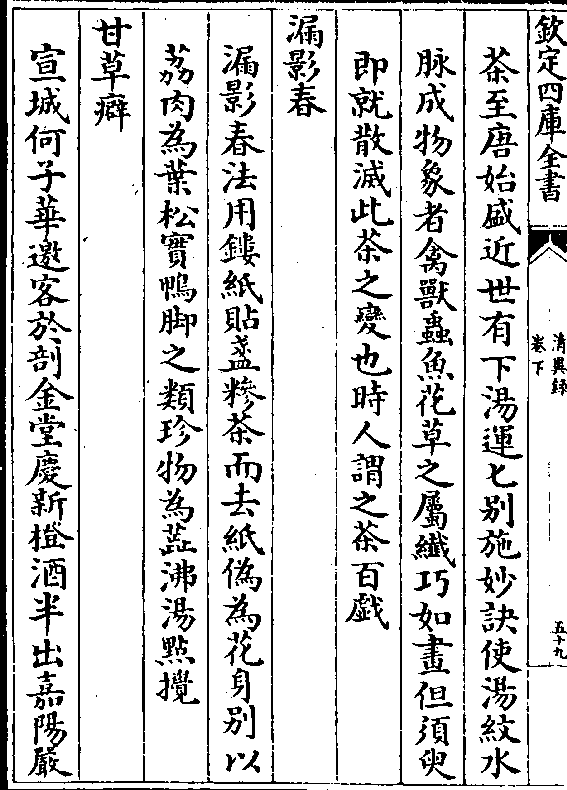 欽定四庫全書
清異錄
卷下
五十九
茶至唐始盛近世有下湯運匕别施妙訣使湯紋水
脉成物象者禽獸蟲魚花草之屬纖巧如畫但須臾
即就散滅此茶之變也時人謂之茶百戯
漏影春
漏影春法用鏤紙貼盞糝茶而去紙偽為花身别以
荔肉為葉松實鴨脚之類珍物為蕋沸湯㸃攪
甘草癖
宣城何子華邀客於剖金堂慶新橙酒半出嘉陽嚴